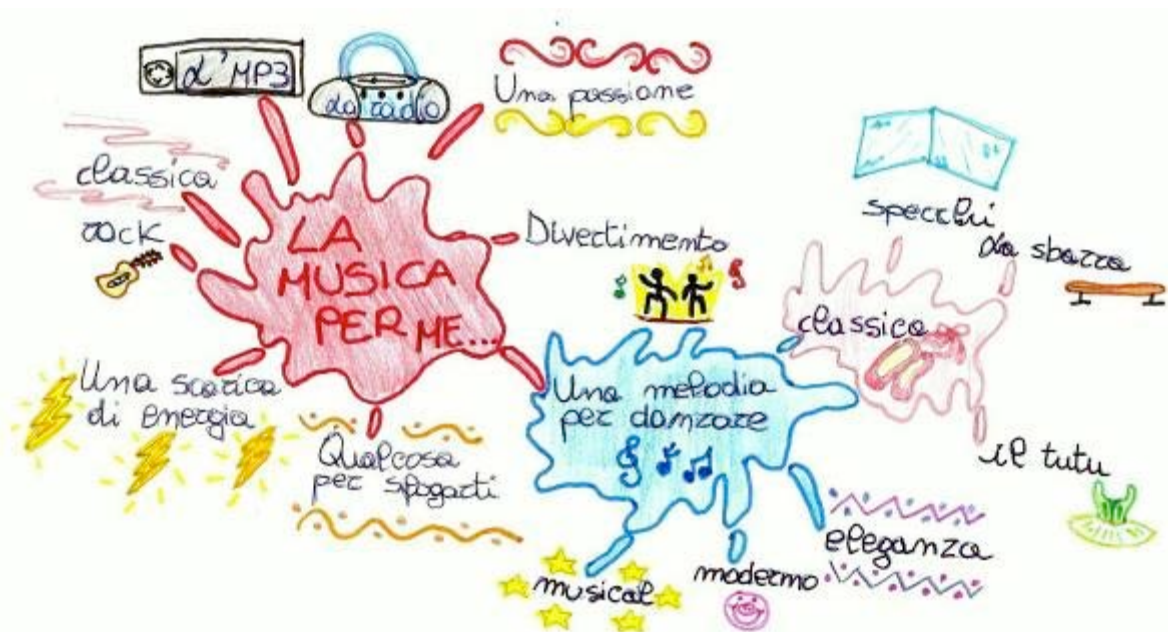 L'MP3
La radio
Una passione
classica
rock
LA
MUSICA
PER ME...
Divertimento
Una scarica
di energia
Qualcosa
per sfogarti
Una melodia
per danzare
classico
specchi
La sbarra
il tutu
eleganza
moderno
musical